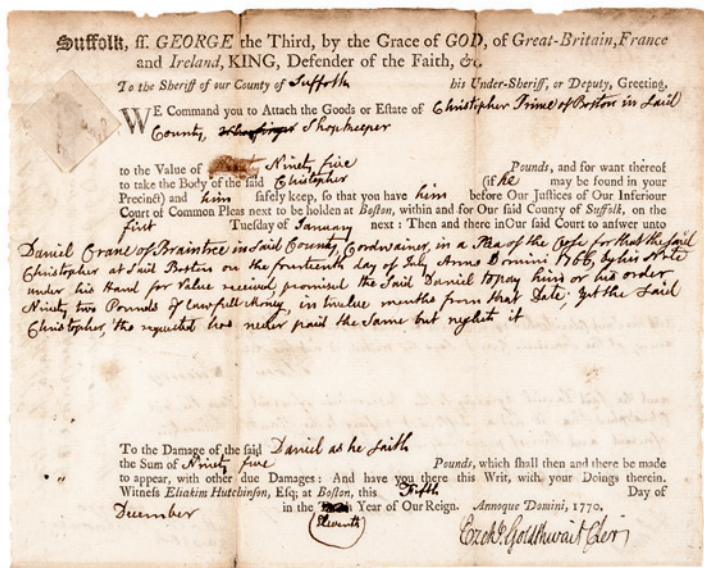 Suffolk, ſſ. GEORGE the Third, by the Grace of GOD, of Great-Britain, France
and Ireland, KING, Defender of the Faith, &c.
To the Sheriff of our County of Suffolk his Under-Sheriff, or Deputy, Greeting.
WE Command you to Attach the Goods or Eſtate of Chriſtopher Prince of Boston in Said
County, Shopkeeper
to the Value of Ninety five Pounds, and for want thereof
to take the Body of the ſaid Chriſtopher (if he may be found in your
Precinct) and him ſafely keep, ſo that you have him before Our Juſtices of Our Inferiour
Court of Common Pleas next to be holden at Boſton, within and for Our ſaid County of Suffolk, on the
firſt Tueſday of January next : Then and there in Our ſaid Court to anſwer unto
Daniel Crane of Braintree in Said County, Cordwainer, in a Plea of the Caſe for that the Said
Chriſtopher at Said Boston on the fourteenth day of July Anno Domini 1766, by his Note
under his Hand for Value received promised the Said Daniel to pay him or his order
Ninety two Pounds of Lawfull Money, in twelve months from that Date; yet the Said
Chriſtopher, tho requeſted has never paid the Same but neglects it
To the Damage of the ſaid Daniel as he ſaith
the Sum of Ninety five Pounds, which ſhall then and there be made
to appear, with other due Damages : And have you there this Writ, with your Doings therein.
Witneſs Eliakim Hutchinſon, Eſq; at Boſton, this Fifth Day of
December in the Year of Our Reign. Annoque Domini, 1770.
(Eleventh)
Ezek. Goldthwait Cler